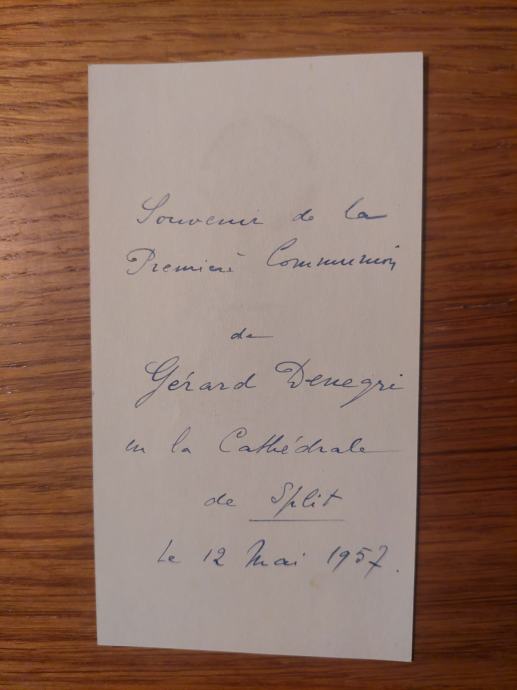 Souvenir de la
Première Communion
de
Gérard Denegri
en la Cathédrale
de Split
le 12 Mai 1957.